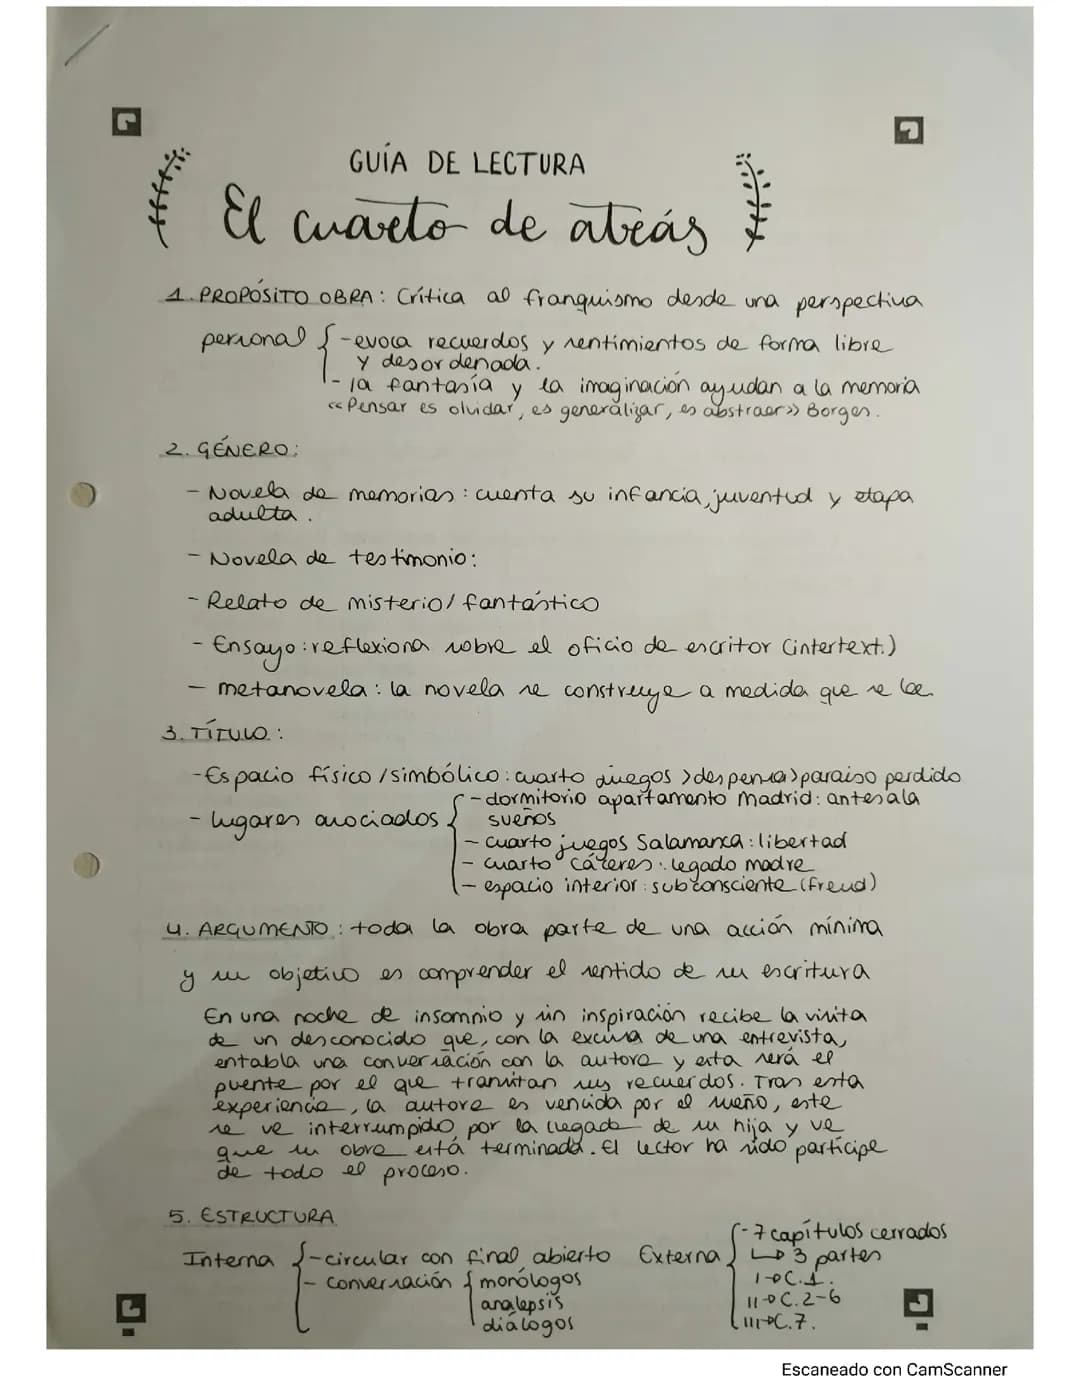 GUÍA DE LECTURA
El cuarto de atrás
1. PROPÓSITO OBRA: Crítica al franquismo desde una perspectiva
personal { -evoca recuerdos y sentimientos de forma libre
y desordenada.
- la fantasía y la imaginación ayudan a la memoria
«Pensar es olvidar, es generalizar, es abstraer» Borges.
2. GÉNERO:
- Novela de memorias: cuenta su infancia, juventud y etapa
adulta.
- Novela de testimonio:
- Relato de misterio/fantástico
- Ensayo: reflexiona sobre el oficio de escritor (intertext.)
- metanovela: la novela se construye a medida que se lee.
3. TÍTULO:
-Espacio físico/simbólico: cuarto juegos > despensa > paraíso perdido
- lugares asociados { -dormitorio apartamento Madrid: antesala
sueños
- cuarto juegos Salamanca: libertad
- cuarto Cáceres: legado madre
- espacio interior: subconsciente (Freud)
4. ARGUMENTO: toda la obra parte de una acción mínima
y su objetivo es comprender el sentido de su escritura
En una noche de insomnio y sin inspiración recibe la visita
de un desconocido que, con la excusa de una entrevista,
entabla una conversación con la autora y esta será el
puente por el que transitan sus recuerdos. Tras esta
experiencia, la autora es vencida por el sueño, este
se ve interrumpido por la llegada de su hija y ve
que su obra está terminada. El lector ha sido partícipe
de todo el proceso.
5. ESTRUCTURA
Interna { -circular con final abierto
- conversación { monólogos
analepsis
diálogos
Externa { - 7 capítulos cerrados
↳ 3 partes
I→C.1.
II→C.2-6
III→C.7.
Escaneado con CamScanner